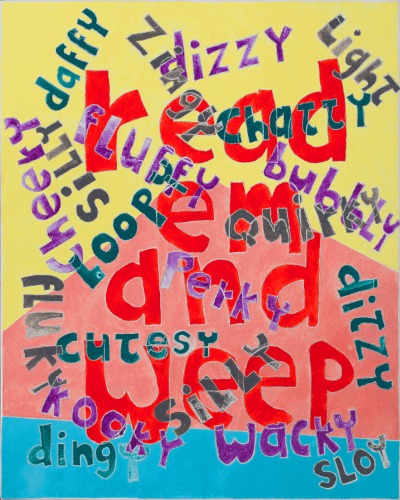 daffy
Zingy
dizzy
Light
read
chatty
cheeky
SiLLY
fLUffy
bubbLY
em
quirky
LOOPY
and
Perky
fLUKY
diTZY
cuTesY
weep
KOOKY
wacKY
dingY
SLOY